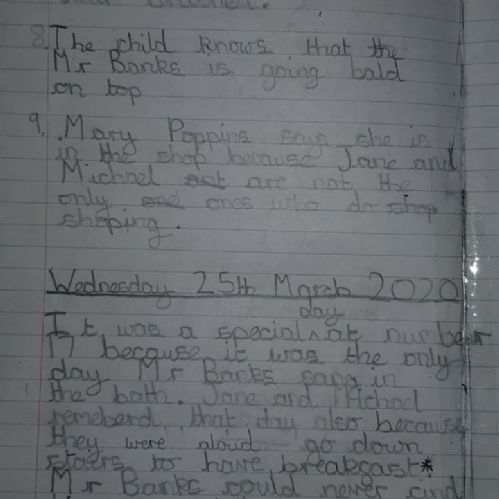 8. The child knows that the
Mr Banks is going bald
on top
9. Mary Poppins says she is
in the shop because Jane and
Michael are not the
only ones who do shop
shoping.
Wednesday 25th March 2020
day
It was a special at number
17 because it was the only
day Mr Banks sang in
the bath. Jane and Michael
remeberd that day also because
they were aloud go down
stairs to have breakcast*
Mr Banks could never find